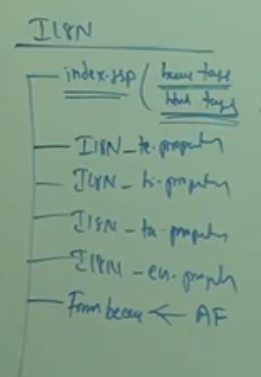 I18N
index.jsp ( bean tags
html tags
I18N_te.property
I18N_hi.property
I18N_ta.property
I18N_en.property
Form bean ← AF